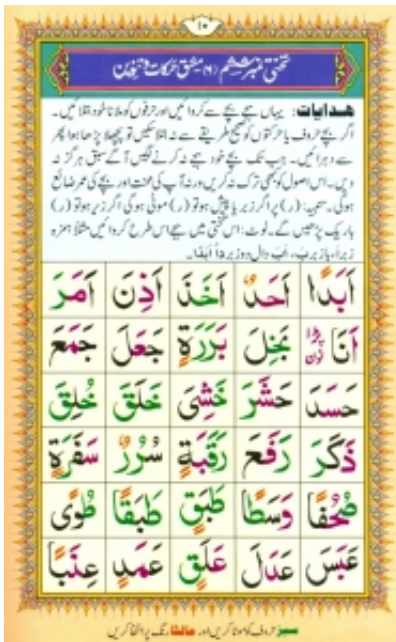 ۱۰
تختی نمبر ششم (۶) مشق حرکات و تنوین
ھدایات: یہاں ہجے بچے سے کروائیں اور حرفوں کو ملانا خود بتلائیں۔
اگر بچے حروف یا حرکتوں کو صحیح طریقے سے نہ بتلا سکیں تو پچھلا پڑھا ہوا پھر
سے دہرائیں۔ جب تک بچے خود ہجے نہ کرنے لگیں آگے سبق ہرگز نہ
دیں۔ اس اصول کو کبھی ترک نہ کریں ورنہ آپ کی محنت اور بچے کی عمر ضائع
ہوگی۔ تنبیہ: (ر) پر اگر زبر یا پیش ہو تو (ر) موٹی ہوگی اگر زیر ہو تو (ر)
باریک پڑھیں گے۔ نوٹ: اس تختی میں ہجے اس طرح کروائیں مثلاً ہمزہ
زبر اَ، با زبر بَ، اَبَ دال دو زبر دًا اَبَدًا۔
اَبَدًا اَحَدٌ اَخَذَ اَذِنَ اَمَرَ
اَنَا بَخِلَ بَرَرَةٍ جَعَلَ جَمَعَ
حَسَدَ حَشَرَ خَشِیَ خَلَقَ خُلِقَ
ذَكَرَ رَفَعَ رَقَبَةٍ سُرُرٌ سَفَرَةٍ
صُحُفًا وَسَطًا طَبَقٍ طَبَقًا طُوًی
عَبَسَ عَدَلَ عَلَقٍ عَمَدٍ عِنَبًا
سبز حروف کو موٹا کریں اور مالٹا رنگ پر اخفا کریں